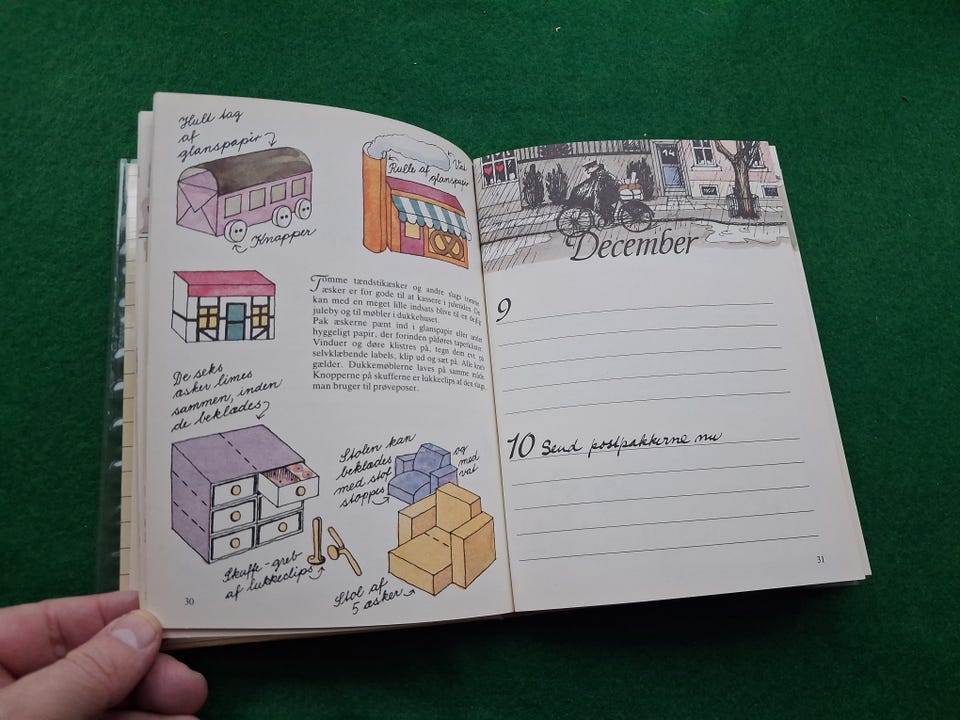 Hult tag
af
glanspapir
Knapper
Vat
Rulle af
glanspapir
Tomme tændstikæsker og andre slags tomme
æsker er for gode til at kassere i juletiden. De
kan med en meget lille indsats blive til en dejlig
juleby og til møbler i dukkehuset.
Pak æskerne pænt ind i glanspapir eller andet
hyggeligt papir, der forinden påføres tapetklister.
Vinduer og døre klistres på, tegn dem evt. på
selvklæbende labels, klip ud og sæt på. Alle kneb
gælder. Dukkemøblerne laves på samme måde.
Knopperne på skufferne er lukkeclips af den slags,
man bruger til prøveposer.
De seks
æsker limes
sammen, inden
de beklædes
Stolen kan
beklædes
med stof
og
stoppes
med
vat
Skuffe-greb
af lukkeclips
Stol af
5 æsker
30
14
December
9
10 Send postpakkerne nu
31